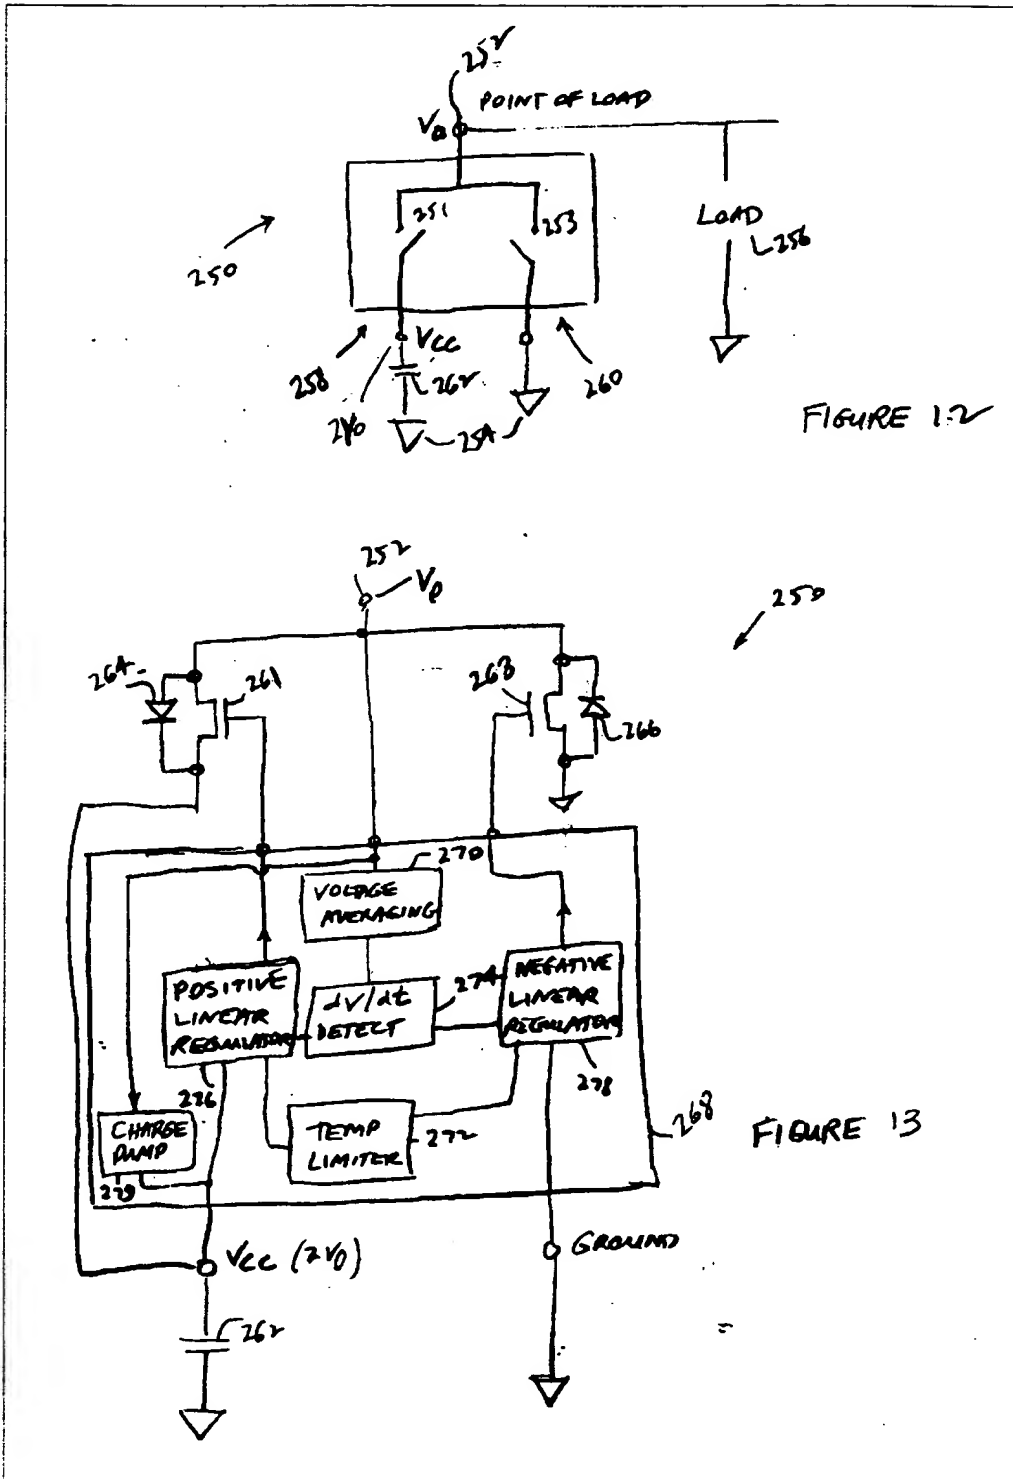 252
POINT OF LOAD
Va
251
253
LOAD
256
250
258
Vcc
262
2V0
260
254
FIGURE 12
252
Vp
250
264
261
263
266
270
VOLTAGE
AVERAGING
POSITIVE
LINEAR
REGULATOR
dv/dt
DETECT
274
NEGATIVE
LINEAR
REGULATOR
276
278
CHARGE
PUMP
279
TEMP
LIMITER
272
268
FIGURE 13
Vcc (2V0)
GROUND
262